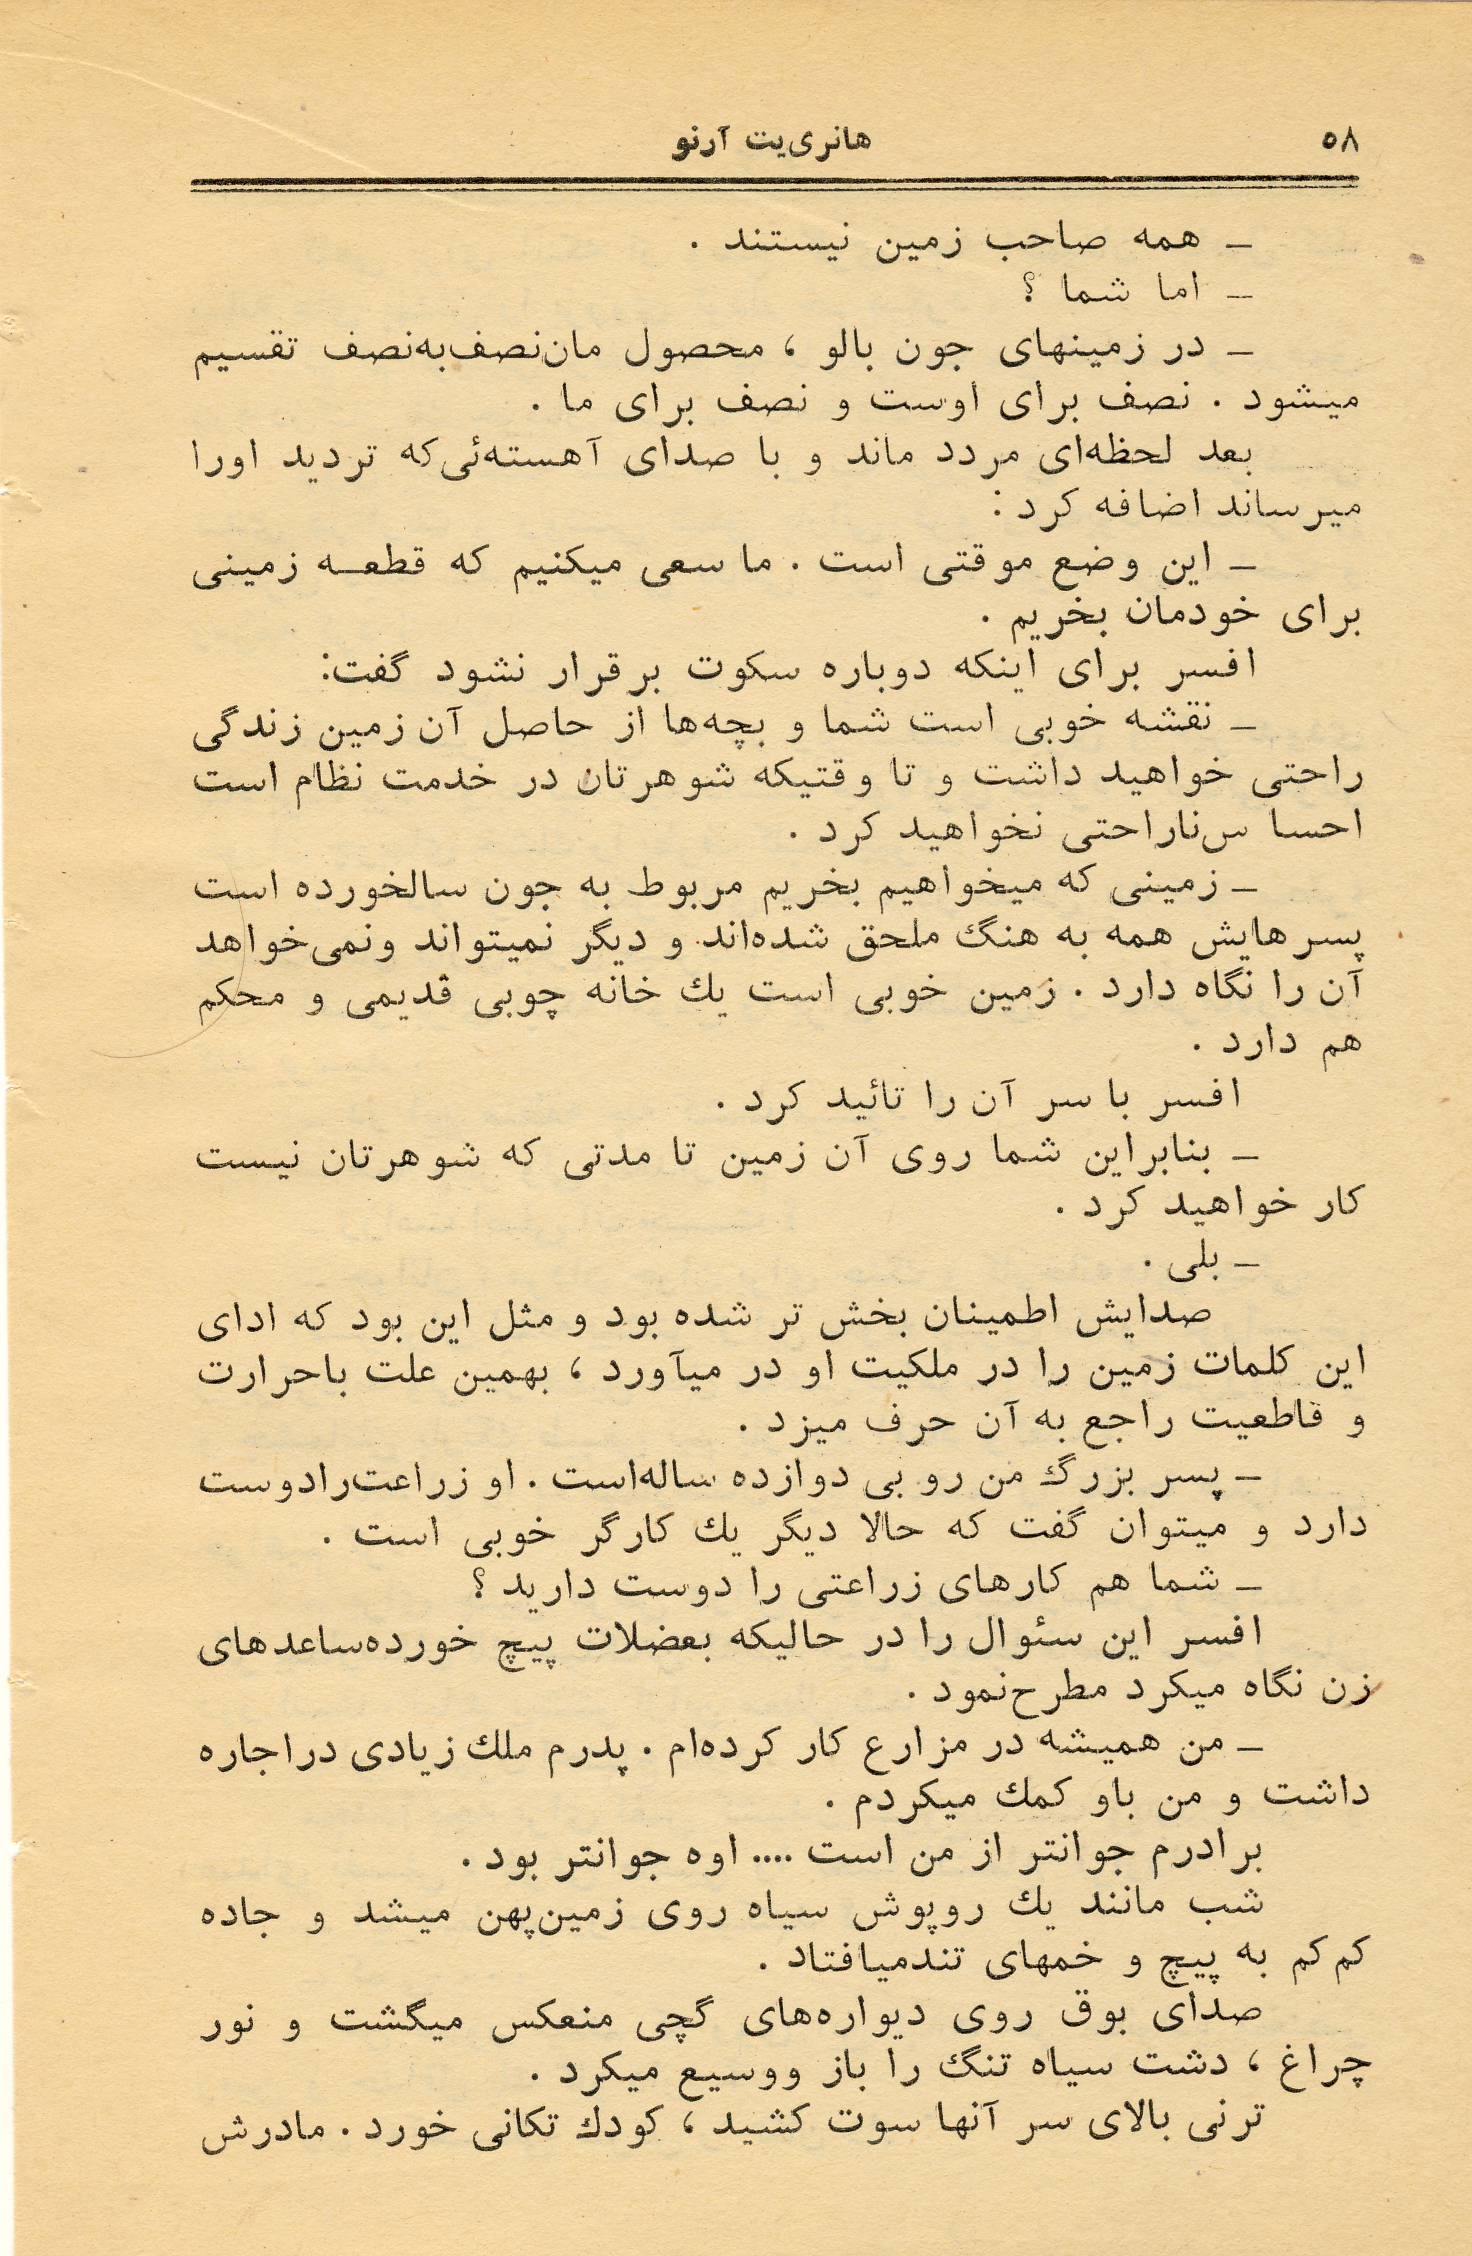 ۵۸
هانری‌یت آرنو
ـ همه صاحب زمین نیستند .
ـ اما شما ؟
ـ در زمینهای جون بالو ، محصول مان‌نصف‌به‌نصف تقسیم
میشود . نصف برای اوست و نصف برای ما .
بعد لحظه‌ای مردد ماند و با صدای آهسته‌ئی‌که تردید اورا
میرساند اضافه کرد :
ـ این وضع موقتی است . ما سعی میکنیم که قطعــه زمینی
برای خودمان بخریم .
افسر برای اینکه دوباره سکوت برقرار نشود گفت:
ـ نقشه خوبی است شما و بچه‌ها از حاصل آن زمین زندگی
راحتی خواهید داشت و تا وقتیکه شوهرتان در خدمت نظام است
احسا س‌ناراحتی نخواهید کرد .
ـ زمینی که میخواهیم بخریم مربوط به جون سالخورده است
پسرهایش همه به هنگ ملحق شده‌اند و دیگر نمیتواند ونمی‌خواهد
آن را نگاه دارد . زمین خوبی است یك خانه چوبی قدیمی و محکم
هم دارد .
افسر با سر آن را تائید کرد .
ـ بنابراین شما روی آن زمین تا مدتی که شوهرتان نیست
کار خواهید کرد .
ـ بلی .
صدایش اطمینان بخش تر شده بود و مثل این بود که ادای
این کلمات زمین را در ملکیت او در میآورد ، بهمین علت باحرارت
و قاطعیت راجع به آن حرف میزد .
ـ پسر بزرگ من روبی دوازده ساله‌است . او زراعت‌رادوست
دارد و میتوان گفت که حالا دیگر یك کارگر خوبی است .
ـ شما هم کارهای زراعتی را دوست دارید ؟
افسر این سئوال را در حالیکه بعضلات پیچ خورده‌ساعدهای
زن نگاه میکرد مطرح‌نمود .
ـ من همیشه در مزارع کار کرده‌ام . پدرم ملك زیادی دراجاره
داشت و من باو کمك میکردم .
برادرم جوانتر از من است .... اوه جوانتر بود .
شب مانند یك روپوش سیاه روی زمین‌پهن میشد و جاده
کم‌کم به پیچ و خمهای تندمیافتاد .
صدای بوق روی دیواره‌های گچی منعکس میگشت و نور
چراغ ، دشت سیاه تنگ را باز ووسیع میکرد .
ترنی بالای سر آنها سوت کشید ، کودك تکانی خورد . مادرش